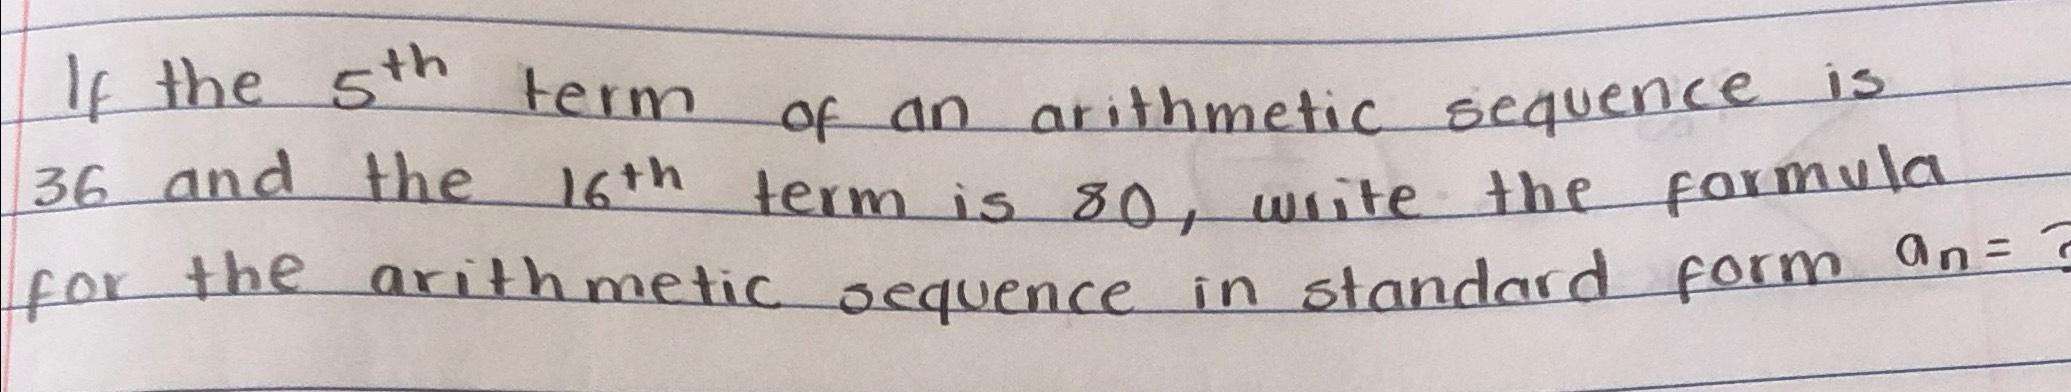 If the 5th term of an arithmetic sequence is
36 and the 16th term is 80, write the formula
for the arithmetic sequence in standard form an = ?